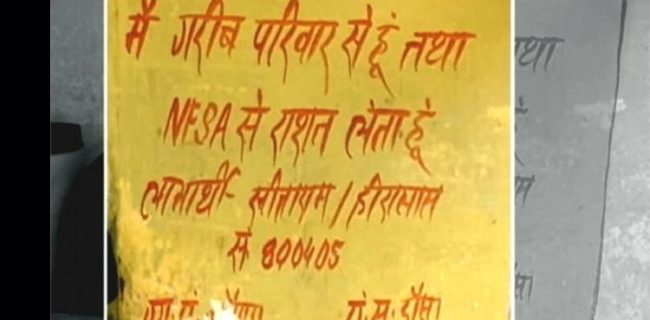 मै गरीब परिवार से हूं तथा
NFSA से राशन लेता हूं
लाभार्थी- सीताराम / हीरालाल
सं 800405
पं. स. दौसा